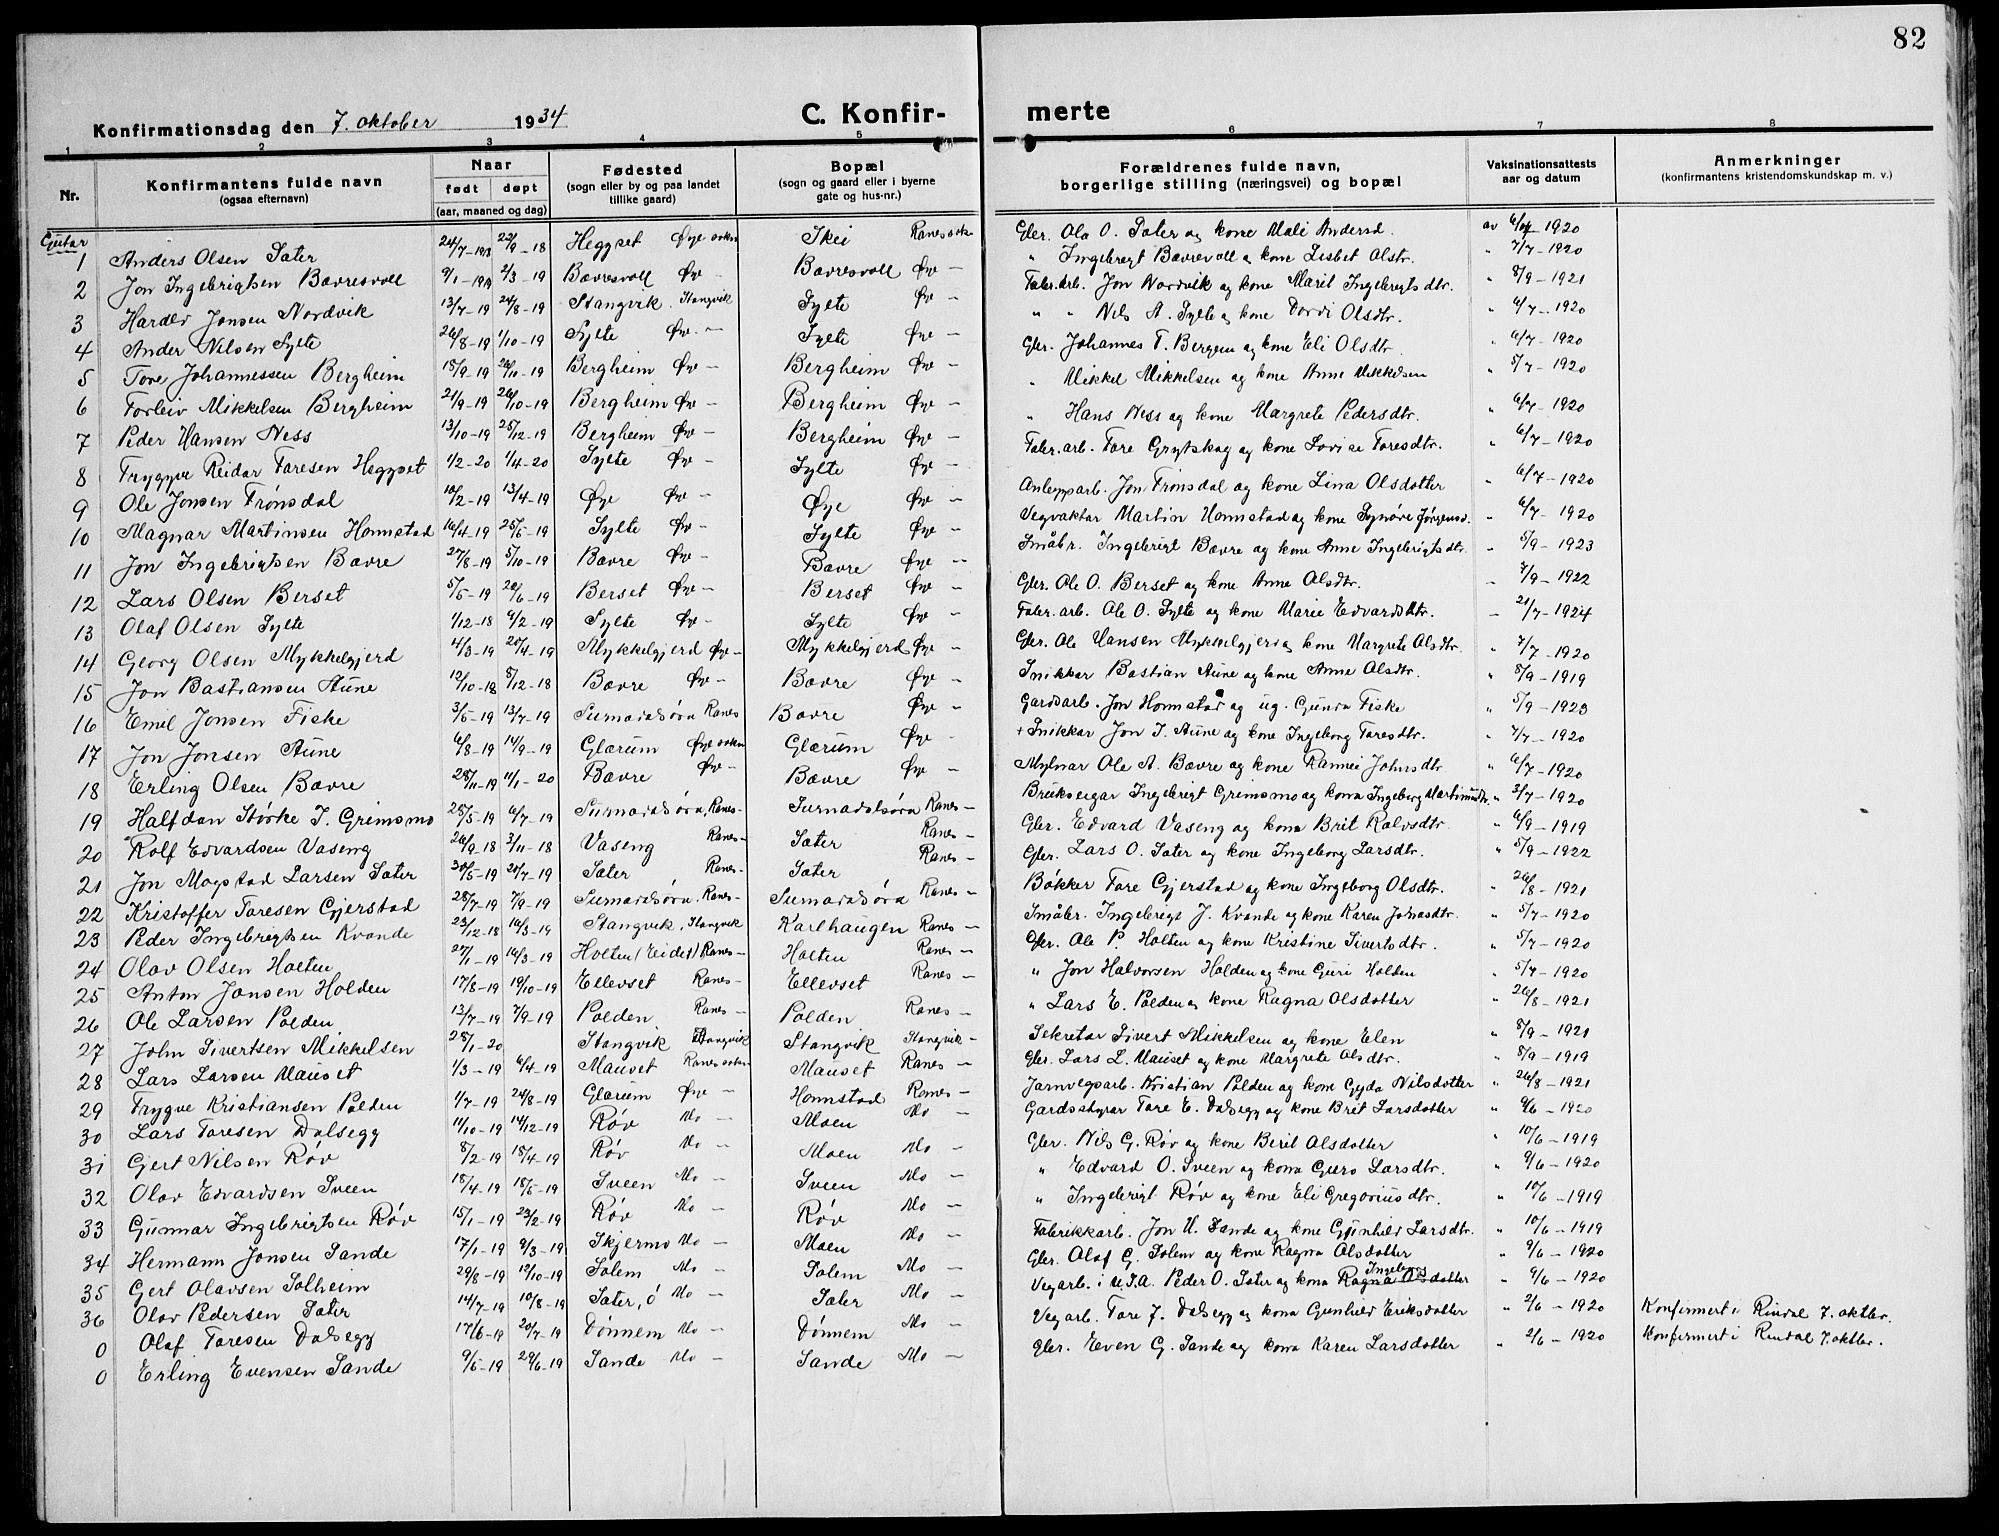 82
Konfirmationsdag den 7. oktober 1934
C. Konfirmerte
1 2 3 4 5 6 7 8
Nr. Konfirmantens fulde navn (ogsaa efternavn) Naar født døpt (aar, maaned og dag) Fødested (sogn eller by og paa landet tillike gaard) Bopæl (sogn og gaard eller i byerne gate og hus-nr.) Forældrenes fulde navn, borgerlige stilling (næringsvei) og bopæl Vaksinationsattests aar og datum Anmerkninger (konfirmantens kristendomskundskap m. v.)
Gutar
1 Anders Olsen Sæter 24/7-1918 22/9-18 Heggset Øye sokn Skei Ranes sokn Gbr. Ola O. Sæter og kone Mali Andersd. av 6/7-1920
2 Jon Ingebrigtsen Bævresvoll 9/1-1919 2/3-19 Bævresvoll Øye - Bævresvoll Øye - " Ingebrigt Bævrevoll og kone Lisbet Olstr. " 7/7-1920
3 Harald Jonsen Nordvik 13/7-19 24/8-19 Stangvik. Stangvik Sylte Øye - Fabr.arb. Jon Nordvik og kone Marit Ingebrigtsdtr. " 8/9-1921
4 Ander Nilsen Sylte 26/8-19 1/10-19 Sylte Øye - Sylte Øye - " " Nils A. Sylte og kone Dordi Olsdtr. " 6/7-1920
5 Tore Johannessen Bergheim 18/9-19 26/10-19 Bergheim Øye - Bergheim Øye - Gbr. Johannes T. Bergem og kone Eli Olsdtr. " 6/7-1920
6 Torleiv Mikkelsen Bergheim 21/9-19 26/10-19 Bergheim Øye - Bergheim Øye - " Mikkel Mikkelsen og kone Anne Mikkelsen " 5/7-1920
7 Peder Hansen Ness 13/10-19 25/12-19 Bergheim Øye - Bergheim Øye - " Hans Ness og kone Margrete Pedersdtr. " 6/7-1920
8 Tryggve Reidar Toresen Heggset 1/2-20 1/4-20 Sylte Øye - Sylte Øye - Fabr.arb. Tore Grytskog og kone Lovise Toresdtr. " 6/7-1920
9 Ole Jonsen Trønsdal 10/2-19 13/4-19 Øye Øye - Øye Øye - Anleggarb. Jon Trønsdal og kone Lina Olsdotter " 6/7-1920
10 Magnar Martinsen Homstad 16/4-19 25/5-19 Sylte Øye - Sylte Øye - Vegvaktar Martin Homstad og kone Synøve Jørgensd. " 6/7-1920
11 Jon Ingebrigtsen Bævre 27/8-19 5/10-19 Bævre Øye - Bævre Øye - Småbr. Ingebrigt Bævre og kone Anne Ingebrigtsdtr. " 5/9-1923
12 Lars Olsen Berset 5/5-19 20/6-19 Berset Øye - Berset Øye - Gbr. Ole O. Berset og kone Anne Olsdtr. - 7/9-1922
13 Olaf Olsen Sylte 1/12-18 6/2-19 Sylte Øye - Sylte Øye - Fabr.arb. Ole O. Sylte og kone Marie Edvardsdtr. - 21/7-1924
14 Georg Olsen Mykkelgjerd 4/3-19 20/4-19 Mykkelgjerd Øye - Mykkelgjerd Øye - Gbr. Ole Hansen Mykkelgjerd og kone Margrete Olsdtr. " 7/7-1920
15 Jon Bastiansen Aune 12/10-18 8/12-18 Bævre Øye - Bævre Øye - Snikkar Bastian Aune og kone Anne Olsdtr. " 8/9-1919
16 Emil Jonsen Fiske 3/5-19 13/7-19 Surnadalsøra Ranes Bævre Øye - Gardsarb. Jon Homstad og ug. Gunda Fiske " 5/9-1923
17 Jon Jonsen Aune 6/8-19 14/9-19 Glærum Øye sokn Glærum Øye - + Snikkar Jon J. Aune og kone Ingeborg Toresdtr. " 7/7-1920
18 Erling Olsen Bævre 28/11-19 11/1-20 Bævre Øye - Bævre Øye - Mylnar Ole A. Bævre og kone Rannei Johnsdtr " 6/7-1920
19 Halfdan Størke I. Grimsmo 25/5-19 6/7-19 Surnadalsøra, Ranes- Surnadalsøra Ranes - Brukseigar Ingebrigt Grimsmo og kona Ingeborg Martinusdtr. " 3/7-1920
20 Rolf Edvardsen Vaseng 26/9-18 3/11-18 Vaseng Ranes- Sæter Ranes- Gbr. Edvard Vaseng og kona Brit Rolvsdtr. " 6/9-1919
21 Jon Mogstad Larsen Sæter 30/5-19 20/7-19 Sæter Ranes- Sæter Ranes - Gbr. Lars O. Sæter og kone Ingeborg Larsdtr. " 5/9-1922
22 Kristoffer Toresen Gjerstad 28/7-19 7/9-19 Surnadalsøra, Ranes- Surnadalsøra Ranes - Bøkker Tore Gjerstad og kone Ingeborg Olsdtr. " 26/8-1921
23 Peder Ingebrigtsen Kvande 23/12-18 16/3-19 Stangvik, Stangvik Karlhaugen Ranes - Småbr. Ingebrigt J. Kvande og kone Karen Johnsdtr. " 5/7-1920
24 Olav Olsen Holten 27/1-19 16/3-19 Holten (Eidet) Ranes- Holten Ranes - Gbr. Ole P. Holten og kone Kristine Sivertsdtr. " 5/7-1920
25 Anton Jonsen Holden 17/8-19 19/10-19 Ellevset Ranes- Ellevset Ranes - " Jon Halvorsen Holden og kone Guri Holden " 5/7-1920
26 Ole Larsen Polden 13/7-19 7/9-19 Polden Ranes- Polden Ranes - " Lars E. Polden og kone Ragna Olsdotter " 26/8-1921
27 John Sivertsen Mikkelsen 28/1-20 Stangvik Stangvik Stangvik Stangvik - Sekretær Sivert Mikkelsen og kone Elen " 8/9-1921
28 Lars Larsen Mauset 1/3-19 6/4-19 Mauset Ranes sokn Mauset Ranes - Gbr. Lars L. Mauset og kone Margrete Olsdtr. " 8/9-1919
29 Trygve Kristiansen Polden 1/7-19 24/8-19 Glærum Øye - Homstad Ranes - Jarnvegsarb. Kristian Polden og kone Gyda Nilsdotter " 26/8-1921
30 Lars Toresen Dalsegg 11/10-19 14/12-19 Røv Mo - Moen Mo - Gardsstyrar Tore E. Dalsegg og kone Brit Larsdotter " 9/6-1920
31 Gert Nilsen Røv 8/2-19 18/4-19 Røv Mo - Moen Mo - Gbr. Nils G. Røv og kone Berit Olsdotter " 10/6-1919
32 Olav Edvardsen Sveen 18/4-19 18/5-19 Sveen Mo - Sveen Mo - " Edvard O. Sveen og kona Guro Larsdtr. " 9/6-1920
33 Gunnar Ingebrigtsen Røv 15/1-19 23/2-19 Røv Mo - Røv Mo - " Ingebrigt Røv og kone Eli Gregoriusdtr. " 10/6-1919
34 Hermann Jonsen Sande 17/1-19 9/3-19 Skjermo Mo - Moen Mo - Fabrikkarb. Jon H. Sande og kone Gunhild Larsdtr. " 10/6-1919
35 Gert Olavsen Solheim 29/8-19 12/10-19 Solem Mo - Solem Mo - Gbr. Olaf G. Solem og kone Ragna Olsdotter " 9/6-1920
36 Olav Pedersen Sæter 14/7-19 10/8-19 Sæter, ö Mo - Sæter Mo - Vegarb. i U.S.A. Peder O. Sæter og kona Ragna Ingeborg Olsdotter " 9/6-1920
0 Olaf Toresen Dalsegg 17/6-19 20/7-19 Dønnem Mo - Dønnem Mo - Vegarb. Tore J. Dalsegg og kona Gunhild Eriksdotter " 2/6-1920 Konfirmert i Rindal 7. oktbr.
0 Erling Evensen Sande 9/5-19 29/6-19 Sande Mo - Sande Mo - Gbr. Even G. Sande og kona Karen Larsdotter " 2/6-1920 Konfirmert i Rindal 7. oktbr.